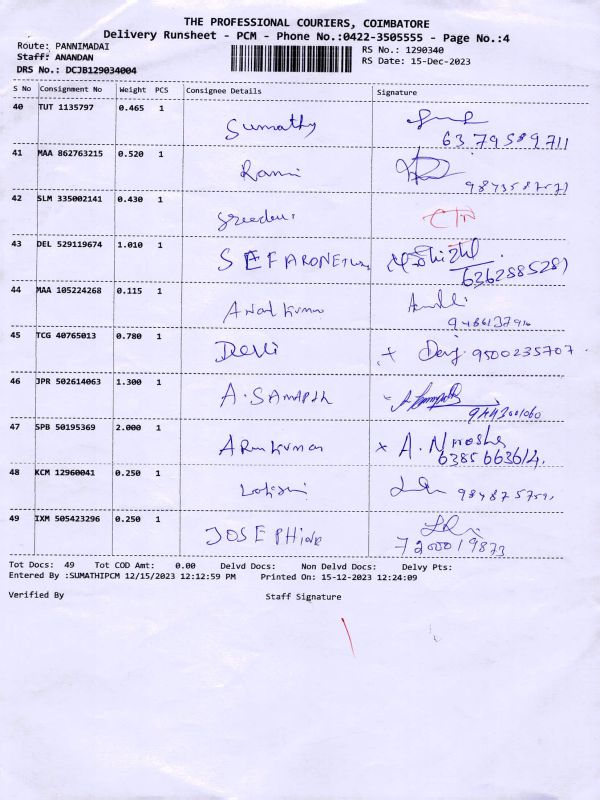 THE PROFESSIONAL COURIERS, COIMBATORE
Delivery Runsheet - PCM - Phone No.:0422-3505555 - Page No.:4
Route: PANNIMADAI
RS No.: 1290340
Staff: ANANDAN
RS Date: 15-Dec-2023
DRS No.: DCJB129034004
S No Consignment No Weight PCS Consignee Details Signature
40 TUT 1135797 0.465 1 Sumathy
6379589711
41 MAA 862763215 0.520 1 Rani
42 SLM 335002141 0.430 1
43 DEL 529119674 1.010 1
6362885281
44 MAA 105224268 0.115 1
9486137916
45 TCG 40765013 0.780 1 Devi x Devi 9500235707
46 JPR 502614063 1.300 1 A. SAMAPTH
9443001060
47 SPB 50195369 2.000 1 ARunkumar x A.
6385663614
48 KCM 12960041 0.250 1
49 IXM 505423296 0.250 1 JOSEPHine
7200019873
Tot Docs: 49 Tot COD Amt: 0.00 Delvd Docs: Non Delvd Docs: Delvy Pts:
Entered By :SUMATHIPCM 12/15/2023 12:12:59 PM Printed On: 15-12-2023 12:24:09
Verified By Staff Signature